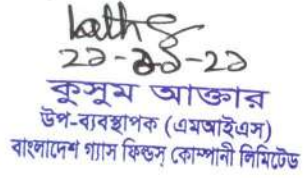 কুসুম আক্তার
উপ-ব্যবস্থাপক (এমআইএস)
বাংলাদেশ গ্যাস ফিল্ডস্ কোম্পানী লিমিটেড